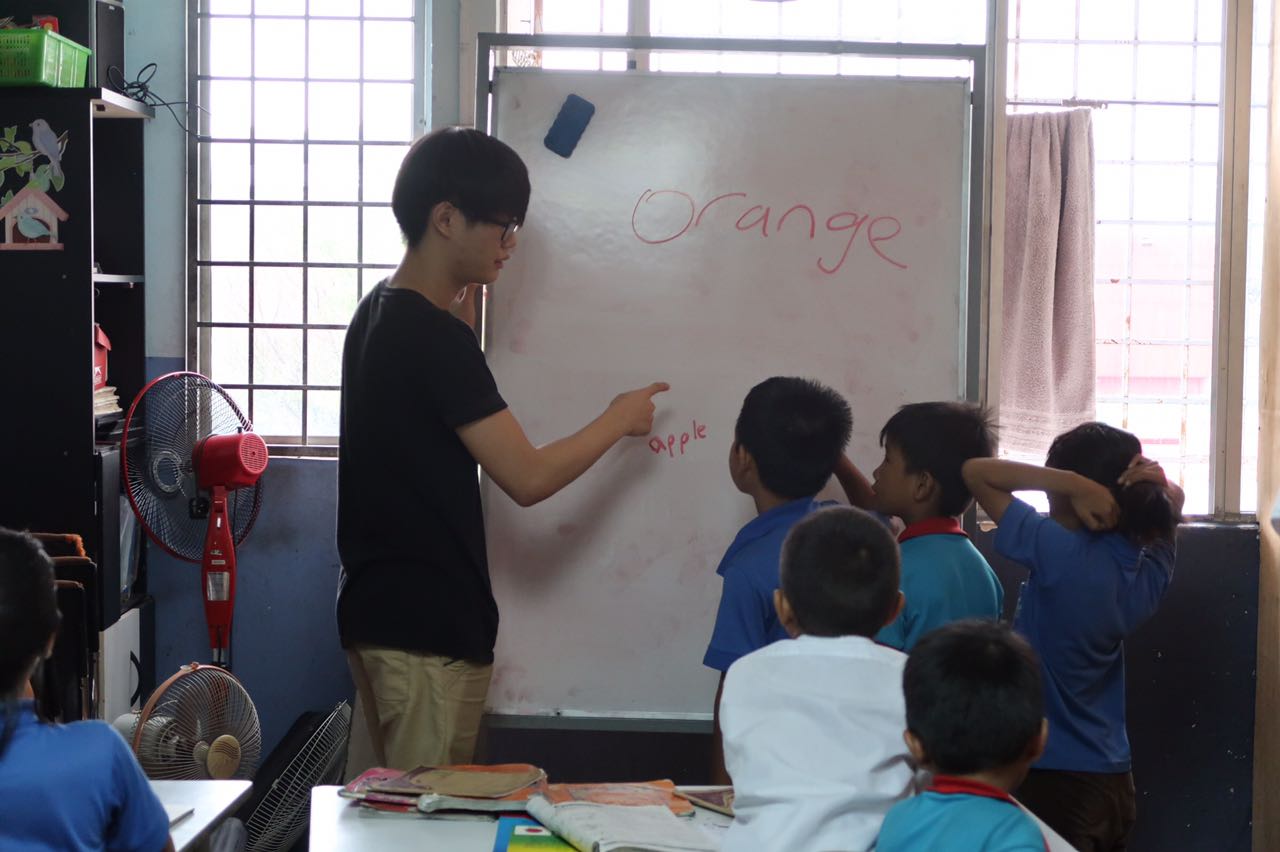 Orange
apple